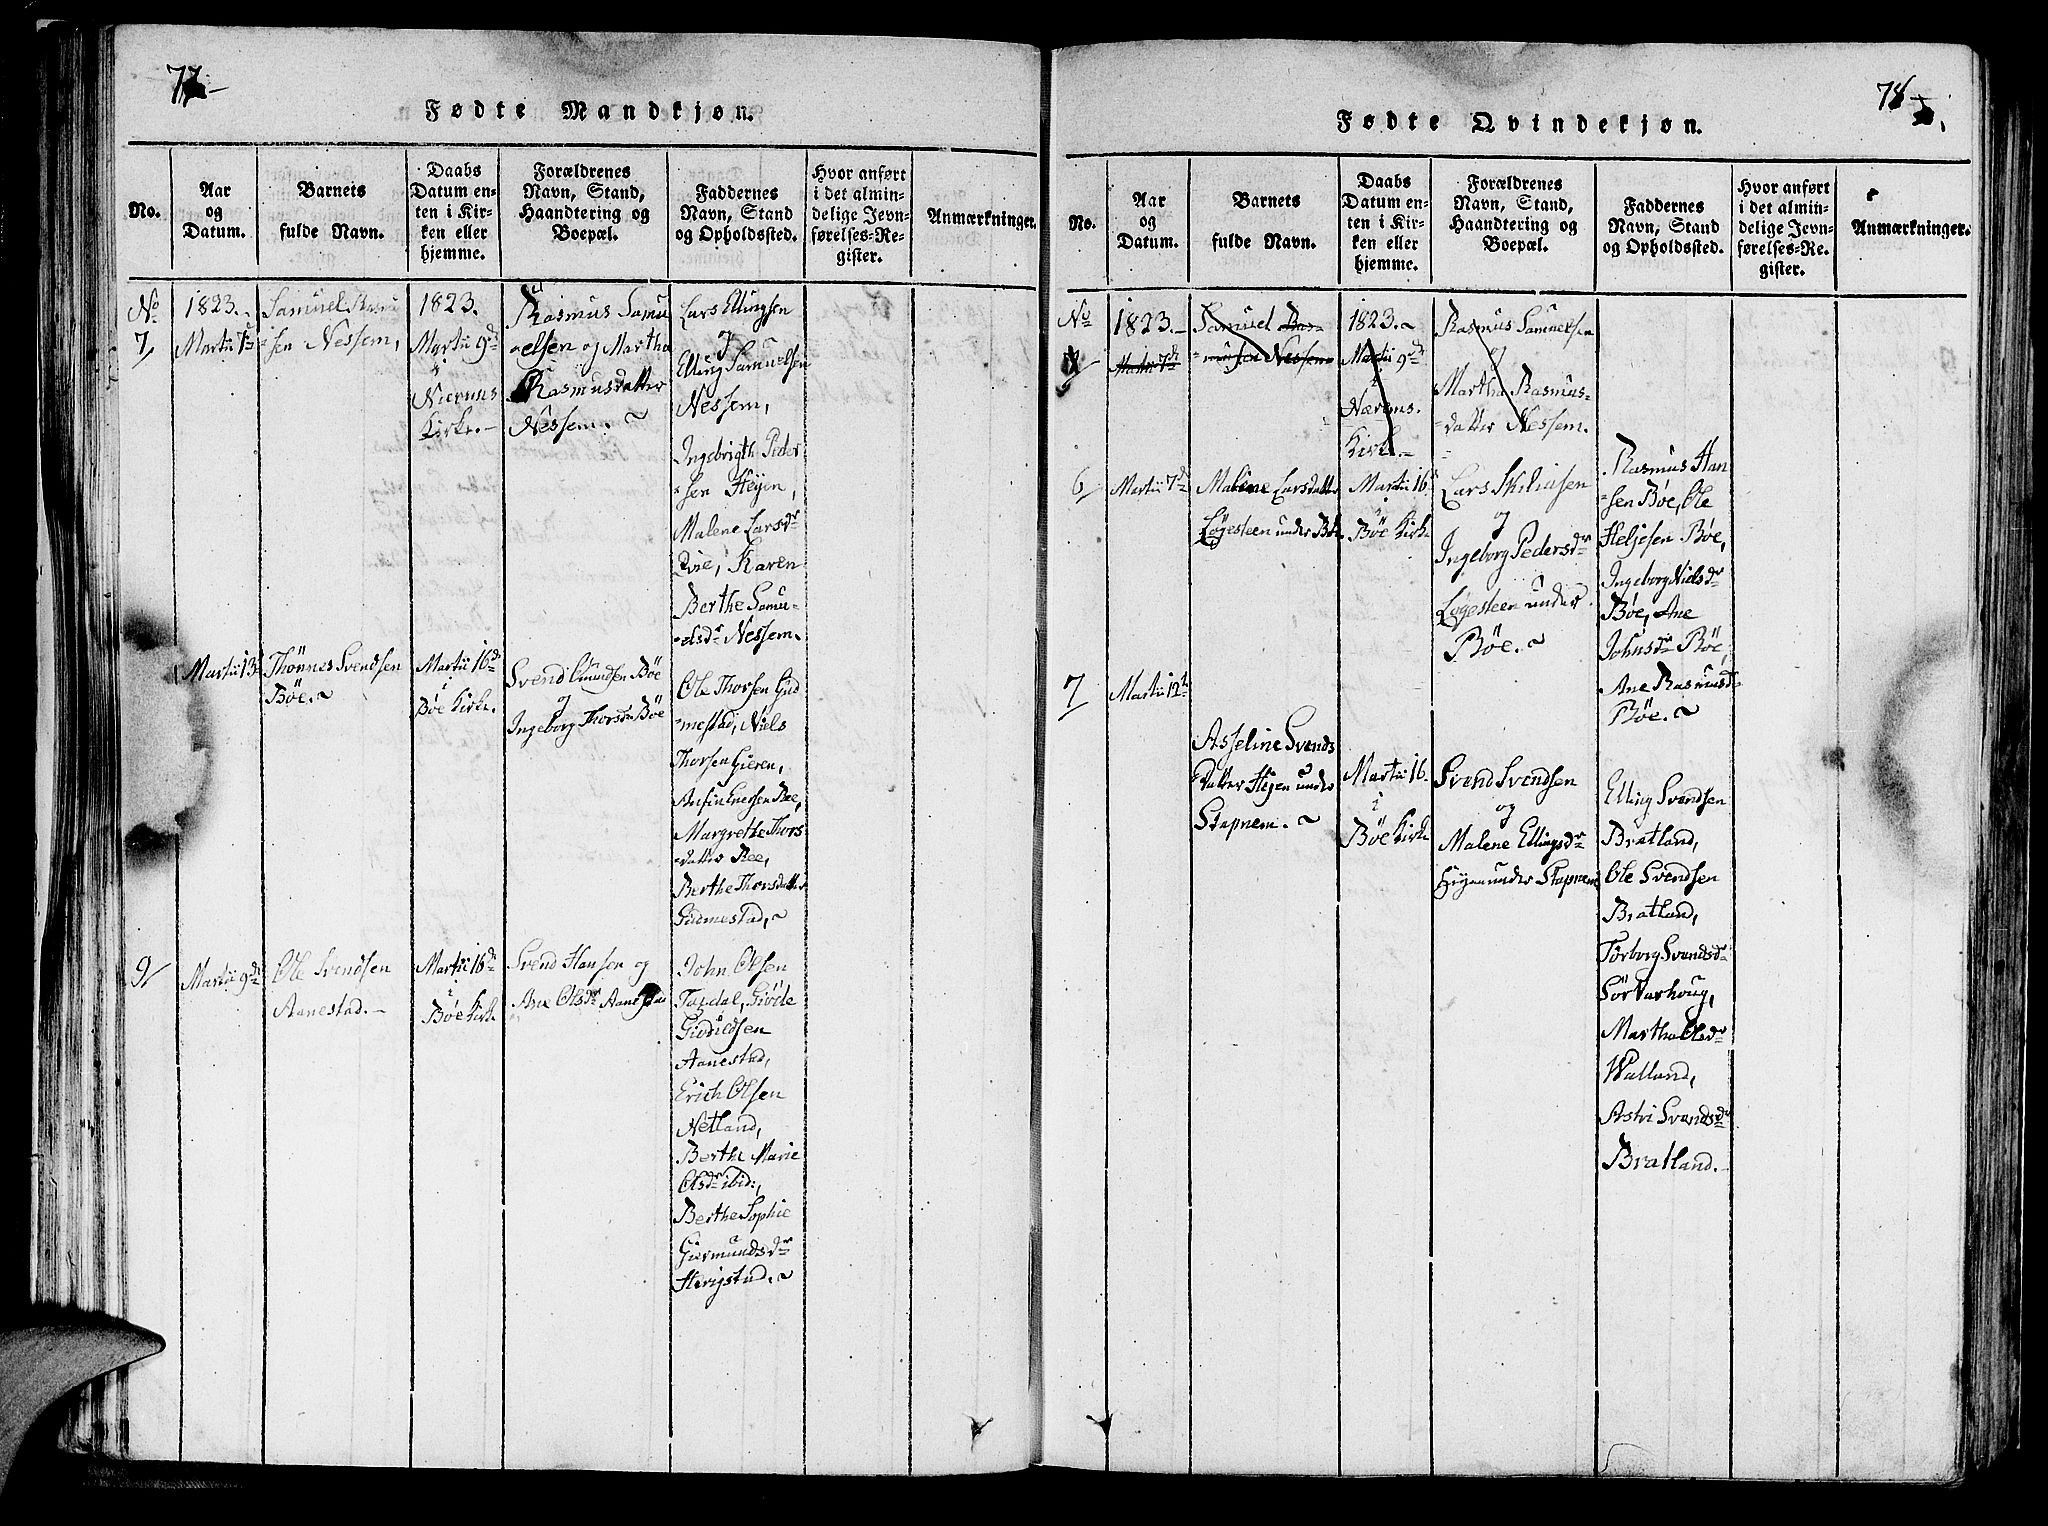 77
Fødte Mandkjøn.
No.
Aar
og
Datum.
Barnets
fulde Navn.
Daabs
Datum en-
ten i Kir-
ken eller
hjemme.
Forældrenes
Navn, Stand,
Haandtering og
Boepæl.
Faddernes
Navn, Stand
og Opholdssted.
Hvor anført
i det almin-
delige Jevn-
førelses-Re-
gister.
Anmærkninger.
No
7
1823.
Martii 7de
Samuel Rasmu
=sen Nessem,
1823.
Martii 9de
i
Kirke.
Rasmus Samu
=elsen og Martha
Rasmusdatter
Nessem.
Lars Ellingsen
og
Elling Samuelsen
Nessem,
Ingebrigth Peder
=sen Heyen,
Malene Larsdr
Qvie, Karen
Berthe Samu-
elsdr Nessem.
Martii 13
Thönnes Svendsen
Böe.
Martii 16d
i
Böe Kirke.
Svend Omundsen Böe
og
Ingeborg Thorsdr Böe
Ole Thorsen Gud
=mestad, Niels
Thorsen Gieren,
Ree,
Margrethe Thors
datter Ree,
Berthe Thorsdatter
Gudmestad,
9
Martii 9de
Ole Svendsen
Aanestad.
Martii 16d
i
Böe Kirk
Svend Hansen og
Ane Olsdr Aanestad
John Olsen
Tapdal,
Aanestad,
Erich Olsen
Netland,
Berthe Marie
Olsdr ibid:,
Berthe Sophie
Giermundsdr
Herigstad.
78
Fødte Qvindekjøn.
No.
Aar
og
Datum.
Barnets
fulde Navn.
Daabs
Datum en-
ten i Kir-
ken eller
hjemme.
Forældrenes
Navn, Stand,
Haandtering og
Boepæl.
Faddernes
Navn, Stand
og Opholdssted.
Hvor anført
i det almin-
delige Jevn-
førelses-Re-
gister.
Anmærkninger.
No
1823.
Martii 7de
Samuel Ras-
musen Nessem
1823.
Martii 9de
i
Nærems
Kirke.
Rasmus Samuelsen
og
Martha Rasmus-
datter Nessem.
6
Martii 7de
Malene Larsdatter
Løgesteen under Böe
Martii 16
i
Böe Kirk
Lars
og
Ingeborg Pedersdr
Løgesteen under
Böe.
Rasmus Han
=sen Böe, Ole
Heljesen Böe,
Ingeborg Nielsdr
Böe, Ane
Johnsdr Böe,
Ane Rasmusd
Böe.
7
Martii 12te
Asseline Svends
datter Heyen under
Stapnem.
Martii 16.
i
Böe Kirk
Svend Svendsen
og
Malene Ellingsdr
Heyen under Stapnem
Elling Svendsen
Bratland,
Ole Svendsen
Bratland,
Torborg Svendsdr
Sör Varhoug,
Martha Olsdr
Walland,
Astri Svendsdr
Bratland.